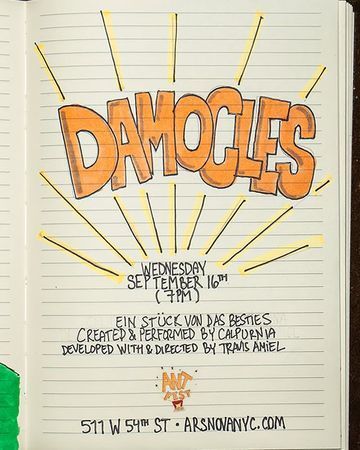 DAMOCLES
WEDNESDAY
SEPTEMBER 16TH
(7PM)
EIN STÜCK VON DAS BESTIES
CREATED & PERFORMED BY CALPURNIA
DEVELOPED WITH & DIRECTED BY TRAVIS AMIEL
ANT
FEST
511 W 54TH ST • ARSNOVANYC.COM